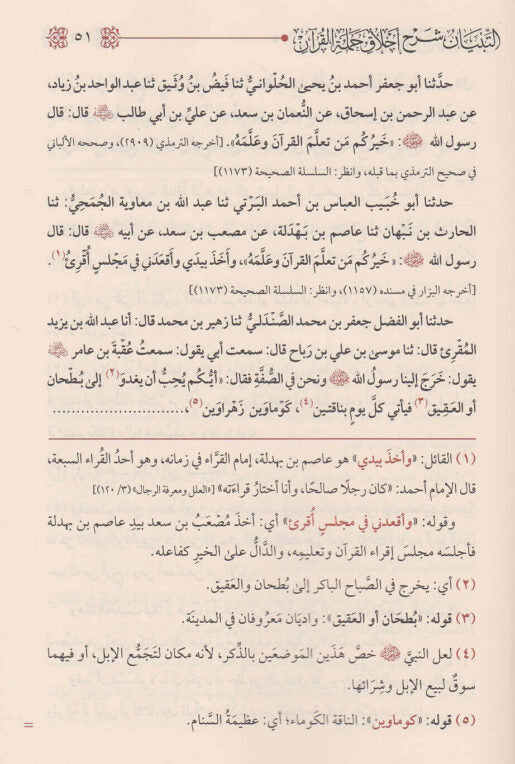 التبيان شرح أخلاق حملة القرآن ٥١
حدَّثنا أبو جعفر أحمد بنُ يحيىٰ الحُلوانيُّ ثنا فَيضُ بنُ وُثَيق ثنا عبد الواحد بنُ زياد،
عن عبد الرحمن بن إسحاق، عن النُّعمان بن سعد، عن عليِّ بن أبي طالب ﵁ قال: قال
رسول الله ﷺ: «خَيرُكُم مَن تعلَّمَ القرآنَ وعَلَّمَهُ». [أخرجه الترمذي (٢٩٠٩)، وصححه الألباني
في صحيح الترمذي بما قبله، وانظر: السلسلة الصحيحة (١١٧٣)]
حدثنا أبو خُبَيب العباس بن أحمد البَرْتي ثنا عبد الله بن معاوية الجُمَحِيُّ: ثنا
الحارث بن نَبْهان ثنا عاصم بن بَهْدَلة، عن مصعب بن سعد، عن أبيه ﵁ قال: قال
رسول الله ﷺ: «خَيرُكُم مَن تعلَّمَ القرآنَ وعَلَّمَهُ»، وأخَذَ بيدَي وأقعَدَني في مَجْلسٍ أُقْرِئُ(١).
[أخرجه البزار في مسنده (١١٥٧)، وانظر: السلسلة الصحيحة (١١٧٣)]
حدثنا أبو الفضل جعفر بن محمد الصَّندَليُّ ثنا زهير بن محمد قال: أنا عبد الله بن يزيد
المُقرِئ قال: ثنا موسىٰ بن علي بن رَباح قال: سمعت أبي يقول: سمعتُ عُقْبةَ بن عامر ﵁
يقول: خَرَجَ إلينا رسولُ الله ﷺ ونحن في الصُّفَّةِ فقال: «أيُّكُم يُحِبُّ أن يَغدوَ(٢) إلىٰ بُطْحان
أو العَقِيق(٣) فيأتي كلَّ يوم بناقتين(٤)، كَوْماوَين زَهراوَين(٥)،......................
(١) القائل: «وأخذَ بيدي» هو عاصم بن بهدلة، إمام القرَّاء في زمانه، وهو أحدُ القُراء السبعة،
قال الإمام أحمد: «كان رجلًا صالحًا، وأنا أختارُ قراءَته» [«العلل ومعرفة الرجال» (٣/ ١٢٠)]
وقوله: «وأقعدني في مجلسٍ أُقرئ» أي: أخذَ مُصْعَبُ بن سعد بيدِ عاصم بن بهدلة
فأجلسَه مجلسَ إقراء القرآن وتعليمِه، والدَّالُ علىٰ الخيرِ كفاعله.
(٢) أي: يخرج في الصَّباح الباكر إلىٰ بُطحان والعَقيق.
(٣) قوله: «بُطْحَان أو العَقيق»: واديَان مَعرُوفان في المدينَة.
(٤) لعل النبيَّ ﷺ خصَّ هذَين المَوضعَين بالذِّكر، لأنه مكان لتَجمُّع الإبل، أو فيهما
سوقٌ لبيع الإبل وشِرائها.
(٥) قوله: «كوماوين»: الناقة الكَوماء؛ أي: عظيمَةُ السَّنام.
=